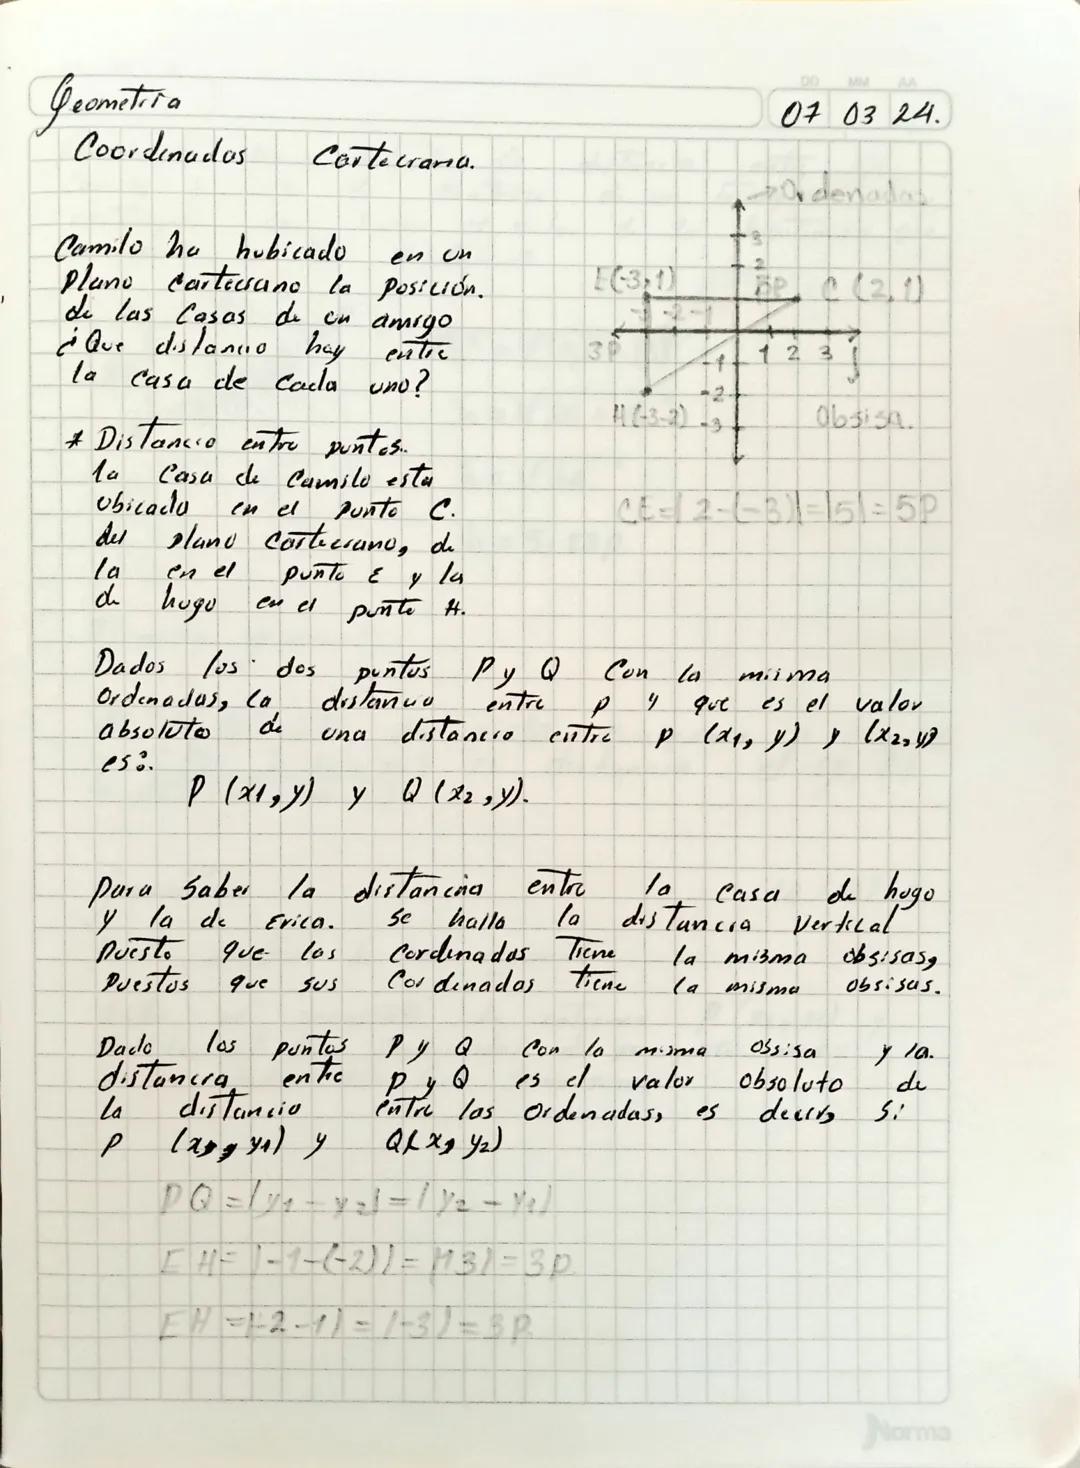 Geometria
DD MM AA
07 03 24.
Coordenadas Cartecrana.
Camilo ha hubicado en un
Plano Cartecrano la Posición.
de las Casas de un amigo
¿Que distancio hay entre
la casa de cada uno?
→ Ordenadas
3
2
E(-3,1)
5P
C (2,1)
-3 -2 -1
3P
-1
1 2 3
-2
H(-3-2)
-3
Obsisa.
CE=|2-(-3)|=|5|=5P
* Distancio entre puntos.
la Casa de Camilo esta
Ubicado en el Punto C.
del plano Cartecrano, de
la en el punto E y la
de hugo en el punto H.
Dados los dos puntos P y Q Con la misma
Ordenadas, la distancio entre p y que es el valor
absoluto de una distancio entre p (x1, y) y (x2, y)
es:
P (x1, y) y Q (x2, y).
para Saber la distancia entre la casa de hugo
y la de Erica. se halla la distancia Vertical
Puesto que las Cordenadas Tiene la misma obsisas,
Puestos que sus Cordenadas tiene la misma obsisas.
Dado los puntos P y Q Con la misma Obsisa y la.
distancia entre P y Q es el valor absoluto de
la distancio entre las Ordenadas, es decir, Si
P (x, y1) y Q(x, y2)
PQ=|y1-y2|=|y2-y1|
EH=|-1-(-2)|=|+3|=3P
EH=|-2-1|=|-3|=3P.
Norma